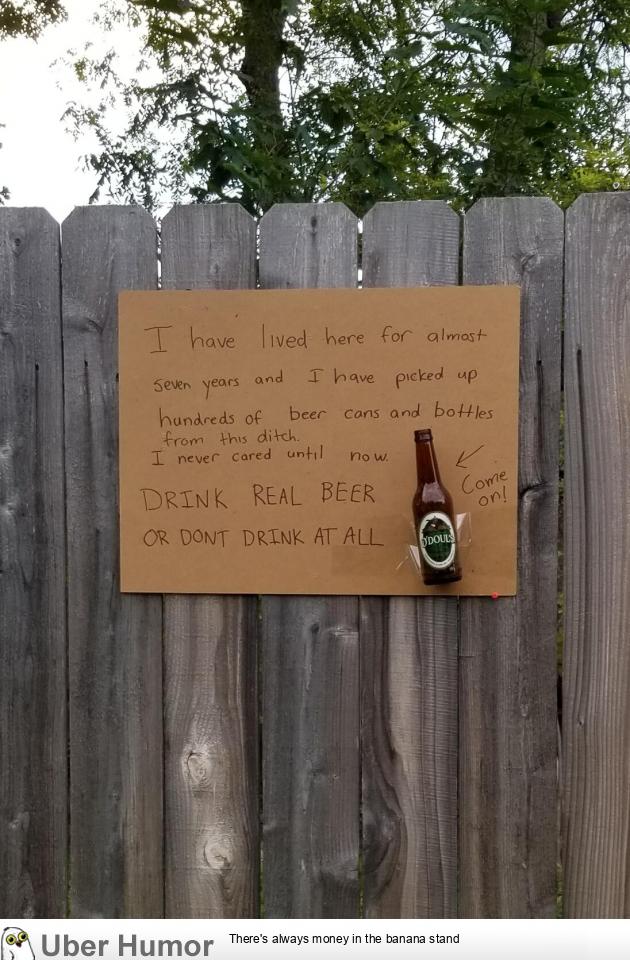 I have lived here for almost
seven years and I have picked up
hundreds of beer cans and bottles
from this ditch.
I never cared until now.
Come
on!
DRINK REAL BEER
OR DONT DRINK AT ALL
O'DOUL'S
Uber Humor
There's always money in the banana stand